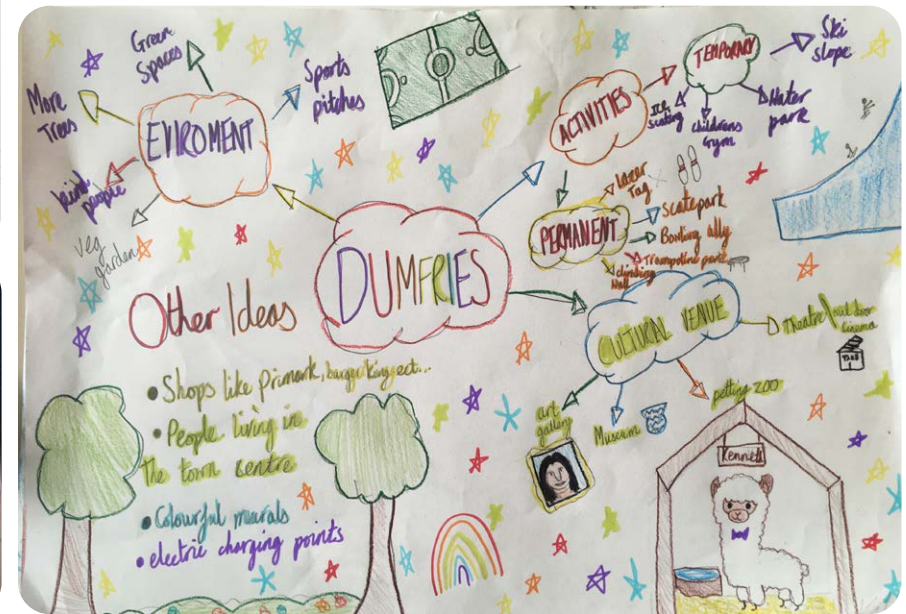 DUMFRIES
EVIROMENT
Green
Spaces
More
Trees
Sports
pitches
kind
people
veg
garden
ACTIVITIES
TEMPORARY
Ski
slope
Water
park
childrens
Gym
Ice
scating
PERMANENT
Lazer
Tag
Scatepark
Bowling ally
Trampoline park
climbing
wall
CULTURAL VENUE
Theatre/outdoor
cinema
petting zoo
Kennels
Museum
art
gallery
Other Ideas
• Shops like primark, burger king ect...
• People living in
The town centre
• Colourful meurals
• electric charging points